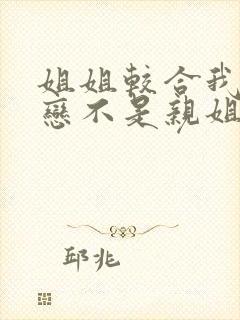 姐姐較合我
戀不是親姐
邱兆